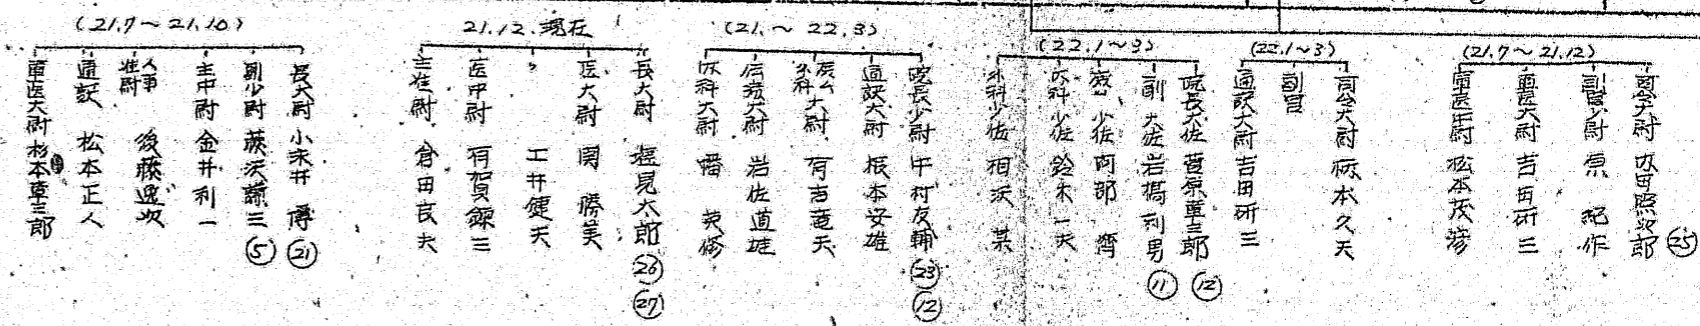 (21.7〜21.10)
長大尉 小末井 博 ㉑
副少尉 藤沢謙三 ⑤
主中尉 金井利一
人事准尉 後藤逸次
通訳 松本正人
軍医大尉 杉本章三郎
21.12.現在
長大尉 程見大郎 ㉖ ㉗
医大尉 関 勝美
? 工井健夫
医中尉 有賀錬三
主准尉 倉田良夫
(21.〜22.3)
院長少尉 中村友輔 ㉓ ⑫
通訳大尉 根本安雄
外科 大尉 有吉竜夫
大尉 岩佐道雄
内科大尉 幡 英修
(22.1〜3)
院長大佐 菅原章三郎 ⑫
副 大佐 岩橋利男 ⑪
少佐 阿部 齊
内科少佐 鈴木一夫
外科少佐 相沢 某
(22.1〜3)
司令大尉 柄本久夫
副官
通訳大尉 吉田研三
(21.7〜21.12)
司令大尉 内田照次郎 ㉕
副官少尉 原 紀作
軍医大尉 吉田研三
軍医中尉 松本茂